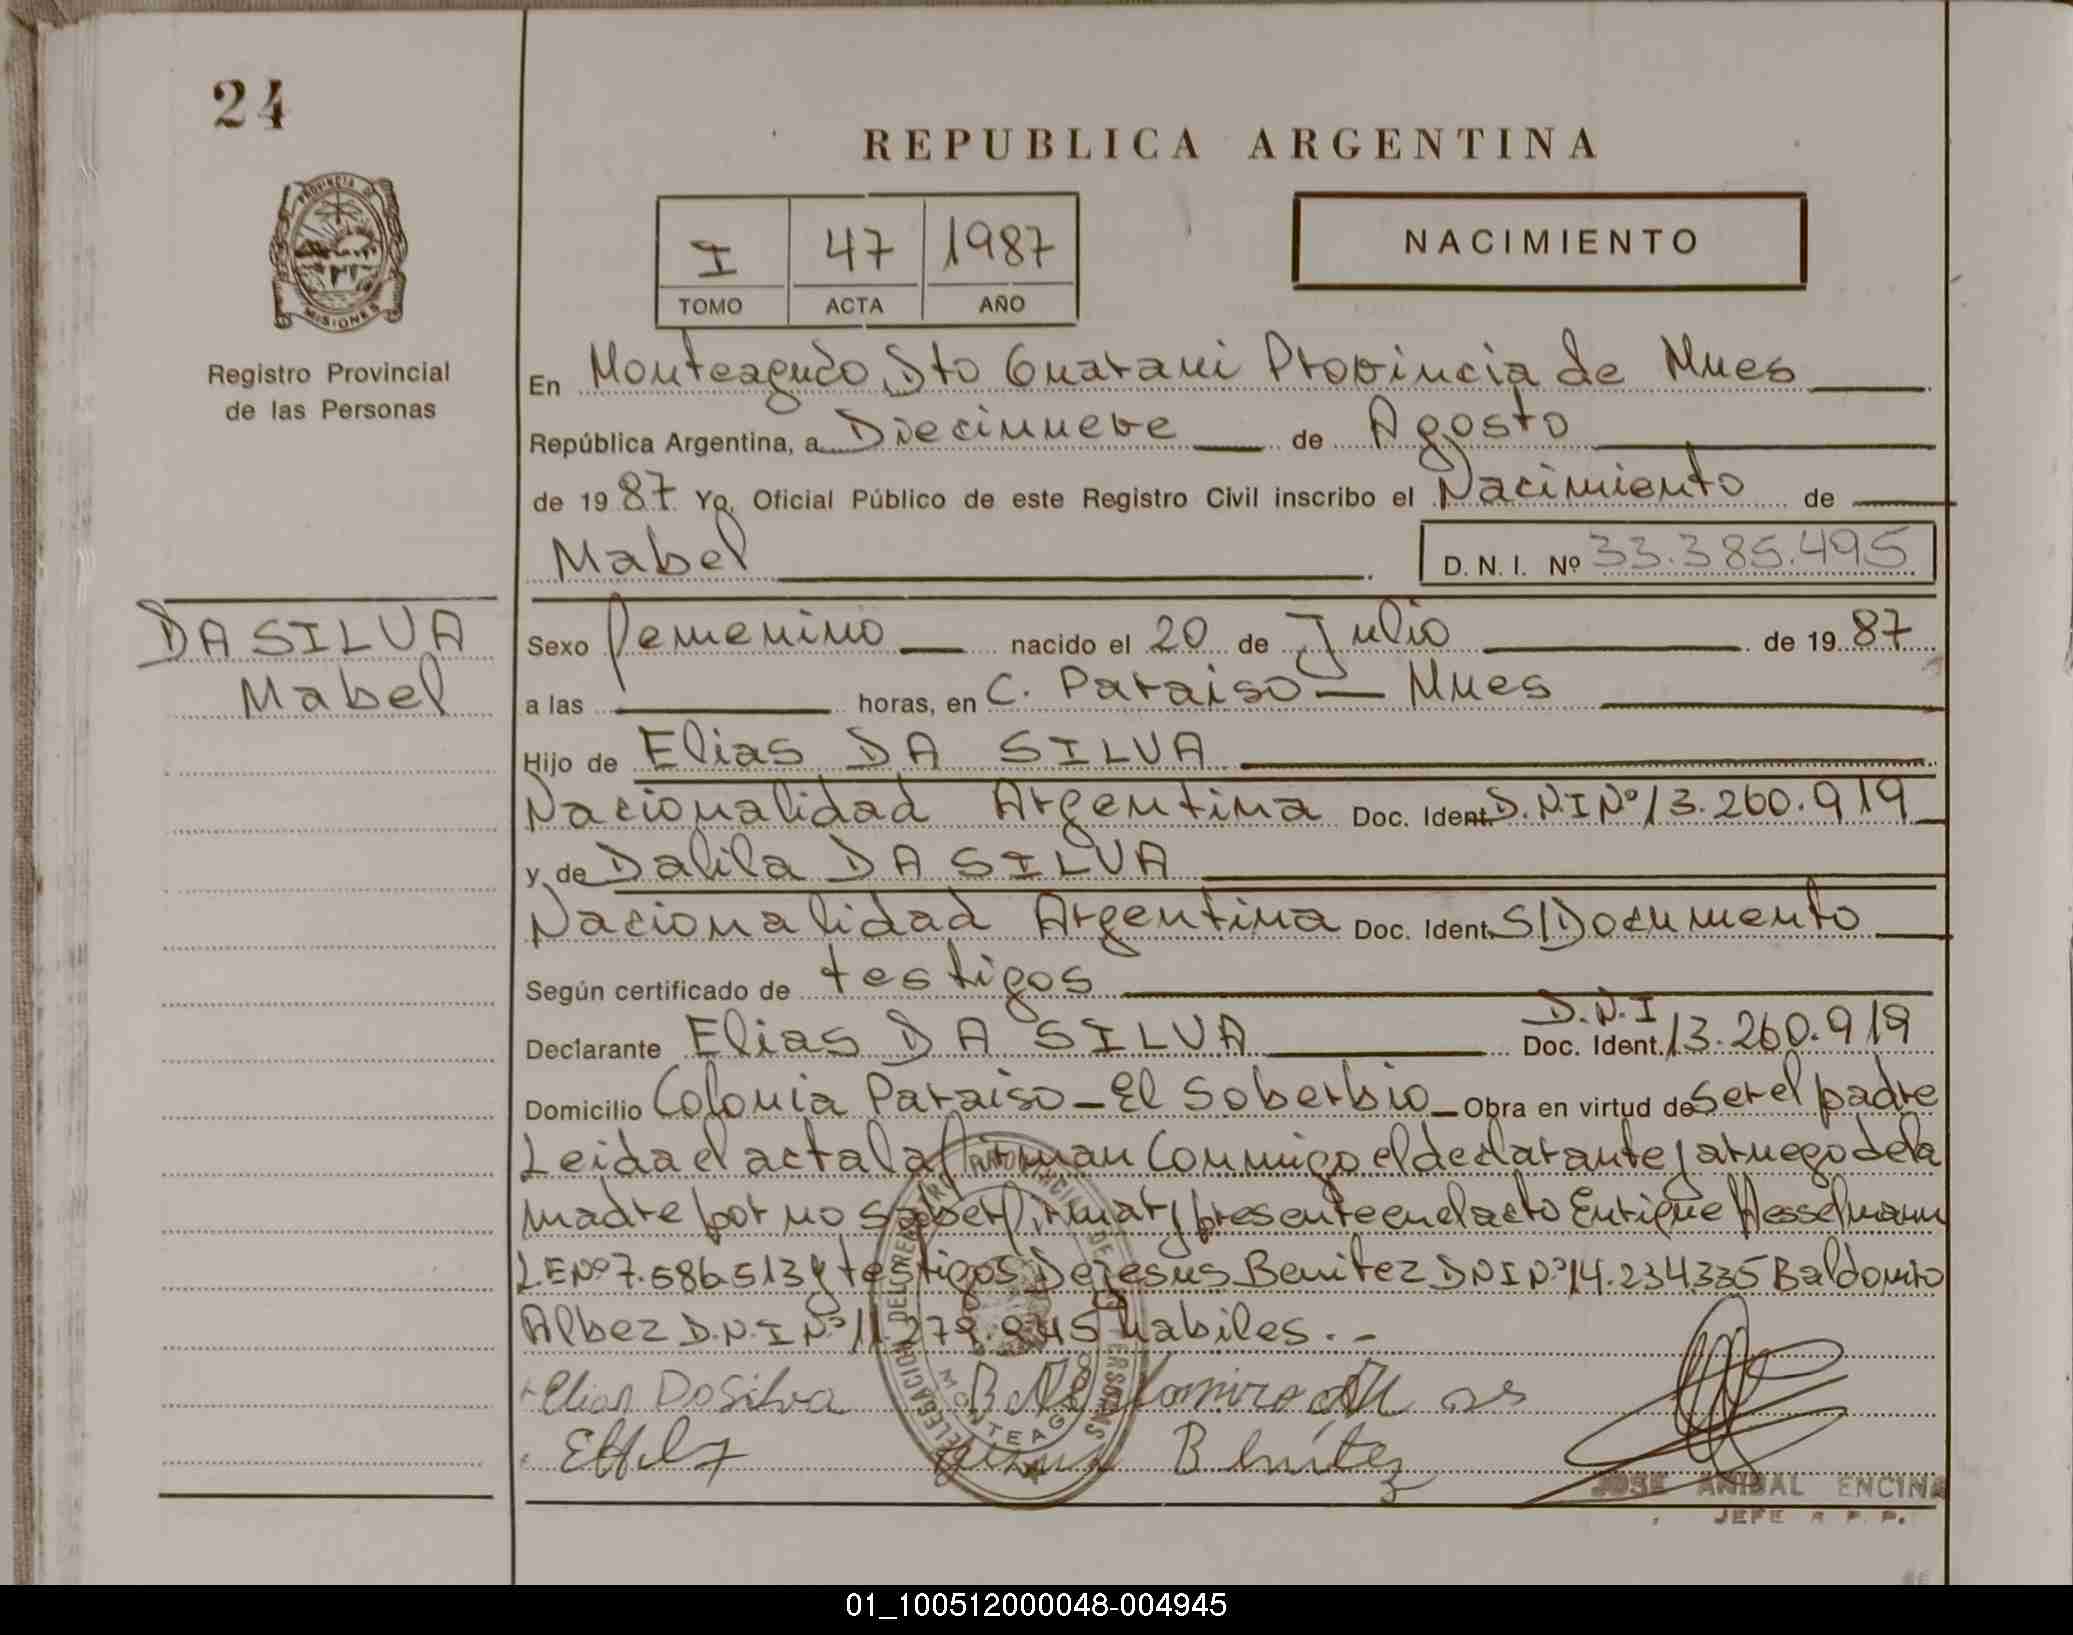 24
REPUBLICA ARGENTINA
PROVINCIA DE
MISIONES
Registro Provincial
de las Personas
I 47 1987
TOMO ACTA AÑO
NACIMIENTO
En Monteagudo Dto Guarani Provincia de Mnes
República Argentina, a Diecinueve de Agosto
de 1987 Yo, Oficial Público de este Registro Civil inscribo el Nacimiento de
Mabel D. N. I. Nº 33.385.495
DA SILVA
Mabel
Sexo femenino nacido el 20 de Julio de 1987
a las horas, en C. Paraiso - Mnes
Hijo de Elias DA SILVA
Nacionalidad Argentina Doc. Ident. D.N.I Nº 13.260.919
y de Dalila DA SILVA
Nacionalidad Argentina Doc. Ident. S/Documento
Según certificado de testigos
Declarante Elias DA SILVA D.N.I Doc. Ident. 13.260.919
Domicilio Colonia Paraiso - El Soberbio - Obra en virtud de Ser el padre
Leida el acta la firman Conmigo el declarante y a ruego de la
madre por no saber firmar y presente en el acto Enrique Hesselmann
LE Nº 7.586.513 y testigos Dejesus Benitez DNI Nº 14.234.335 Baldomiro
Albez D.N.I Nº habiles. -
Elias DaSilva
Benítez
MONTEAGUDO
JOSE ANIBAL ENCINA
JEFE R P. P.
01_100512000048-004945